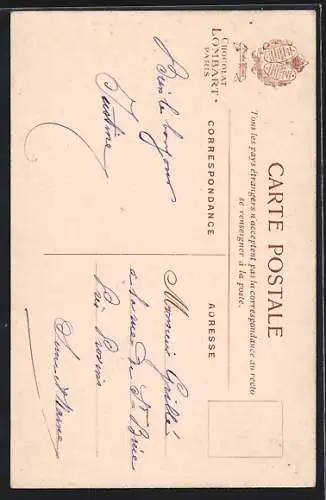 CHOCOLAT
LOMBART
PARIS
CARTE POSTALE
Tous les pays étrangers n'acceptent pas la correspondance au recto
se renseigner à la poste.
CORRESPONDANCE
ADRESSE
bonjour
Justine
Monsieur Grillé
à la rue de Ste Brice
Par Provins
Seine et Marne